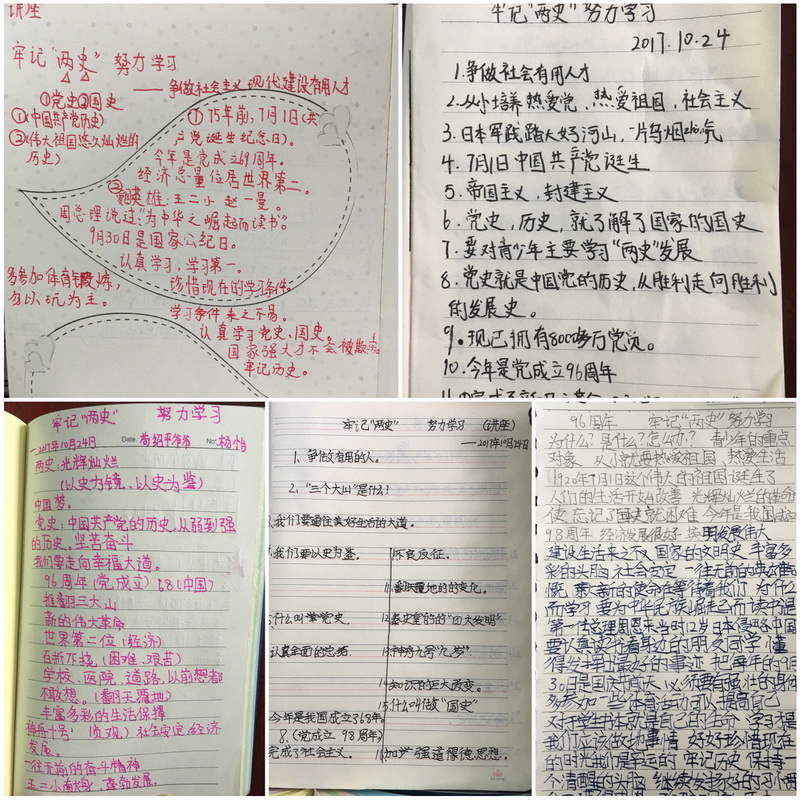 讲座
牢记"两史" 努力学习
——争做社会主义现代建设有用人才
①党史②国史
①(中国共产党历史)
②(伟大祖国悠久灿烂的
历史)
①75年前,7月1日(共
产党诞生纪念日)。
今年是党成立69周年。
经济总量位居世界第二。
②英雄:王二小 赵一曼。
周总理说过:"为中华之崛起而读书"。
9月30日是国家公纪日。
认真学习,学习第一。
该惜现在的学习条件
多参加体育锻炼,
勿以玩为主。
学习条件来之不易。
认真学习党史、国史。
国家强大才不会被欺
牢记历史。
牢记"两史"努力学习
2017.10.24
1.争做社会有用人才
2.从小培养热爱党、热爱祖国,社会主义
3.日本军践踏大好河山,一片乌烟
4.7月1日中国共产党诞生
5.帝国主义,封建主义
6.党史,历史,就了解了国家的国史
7.要对青少年主要学习"两史"发展
8.党史就是中国党的历史,从胜利走向胜利
的发展史。
9.现已拥有8000多万党员。
10.今年是党成立96周年
牢记"两史" 努力学习
2017年10月24日 Date. 苟绍平爷爷 No. 杨怡
两史:光辉灿烂
(以史为镜、以史为鉴)
中国梦。
党史:中国共产党的历史,从弱到强
的历史。坚苦奋斗
我们要走向幸福大道。
96周年(党成立) 68(中国)
推翻三大山
新的伟大革命
世界第二位(经济)
百折不挠,(困难、艰苦)
学校、医院、道路,从前想都
不敢想。(翻天覆地)
丰富多彩的生活保障
神舟十号 (贞观) 社会安定,经济
发展。
一往无前的奋斗精神
王二小南 蓬勃发展。
牢记"两史" 努力学习 (讲座)
——2017年10月24日
1、争做文有用的人。
2、"三个大山"是什么!
3.我们要通往美好生活的大道。
我们要以史为鉴。
什么叫掌党史。
认真全面的总结
今年是我国成立68年。
8.(党成立 98周年)
完成了社会主义。
斥民反征。
11.翻天覆地的的变化。
12.秦史皇的的"四大发明"
13.神舟九号"几岁"。
14.知识的正大改变。
15.什么叫做"国史"
16.加梦强道德德思想。
96周年 牢记"两史"努力学习
为什么?是什么?怎么办? 青少年的重点
对象 从小就要热爱祖国,热爱生活
1920年7月1日这个伟大的祖国诞生了
人们的生活开始改善 光辉灿烂的
使 忘记了国史就困难 今年是我国成立
98周年 经济发展很好 发明发展伟大
建设生活来之不义 国家的文明史 丰富多
彩的头脑 社会安定 一往无前的英雄
慨 崭新的使命在等待着我们 为什么
而学习 要为中华民族崛起而读书是
第一代总理周恩来当时12岁日本侵略中国
要认真读书看身边的朋友同学 懂
得发丰出最好的事迹 把每年的9月
30日是国庆前天 必须要有强壮的身体
多参加一些体育活动可以提高自己
对于学生书本就是自己的生命 学习是
我们应该做地事情 好好珍惜现在
的时光我们是幸运的 牢记历史 保持一
个清醒的头脑 继续发扬好的习